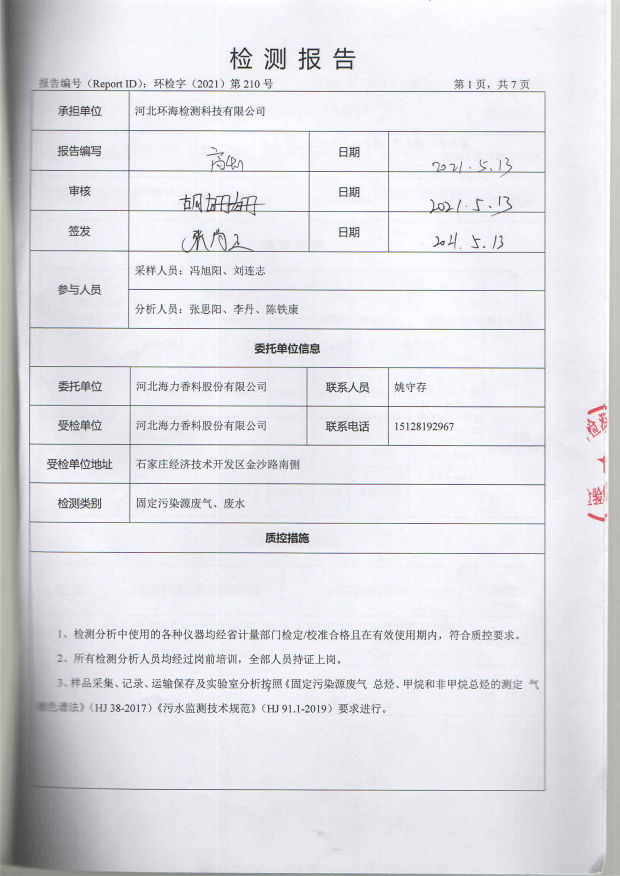 检测报告
报告编号（Report ID）：环检字（2021）第 210 号
第 1 页，共 7 页
承担单位 河北环海检测科技有限公司
报告编写 日期 2021.5.13
审核 胡珊珊 日期 2021.5.13
签发 日期 2021.5.13
参与人员
采样人员：冯旭阳、刘连志
分析人员：张思阳、李丹、陈铁康
委托单位信息
委托单位 河北海力香料股份有限公司 联系人员 姚守存
受检单位 河北海力香料股份有限公司 联系电话 15128192967
受检单位地址 石家庄经济技术开发区金沙路南侧
检测类别 固定污染源废气、废水
质控措施
1、检测分析中使用的各种仪器均经省计量部门检定/校准合格且在有效使用期内，符合质控要求。
2、所有检测分析人员均经过岗前培训，全部人员持证上岗。
3、样品采集、记录、运输保存及实验室分析按照《固定污染源废气 总烃、甲烷和非甲烷总烃的测定 气
相色谱法》（HJ 38-2017）《污水监测技术规范》（HJ 91.1-2019）要求进行。